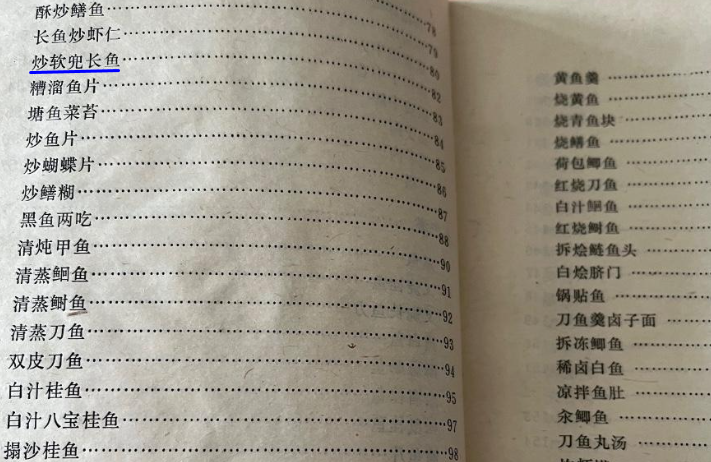 酥炒鳝鱼……78
长鱼炒虾仁……79
炒软兜长鱼……80
糟溜鱼片……82
塘鱼菜苔……83
炒鱼片……84
炒蝴蝶片……85
炒鳝糊……86
黑鱼两吃……87
清炖甲鱼……88
清蒸鮰鱼……90
清蒸鲥鱼……91
清蒸刀鱼……92
双皮刀鱼……93
白汁桂鱼……94
白汁八宝桂鱼……95
搨沙桂鱼……97
98
黄鱼羹……
烧黄鱼……
烧青鱼块……
烧鳝鱼……
荷包鲫鱼……
红烧刀鱼……
白汁鮰鱼……
红烧鲥鱼……
拆烩鲢鱼头……
白烩脐门……
锅贴鱼……
刀鱼羹卤子面……
拆冻鲫鱼……
稀卤白鱼……
凉拌鱼肚……
汆鲫鱼……
刀鱼丸汤……